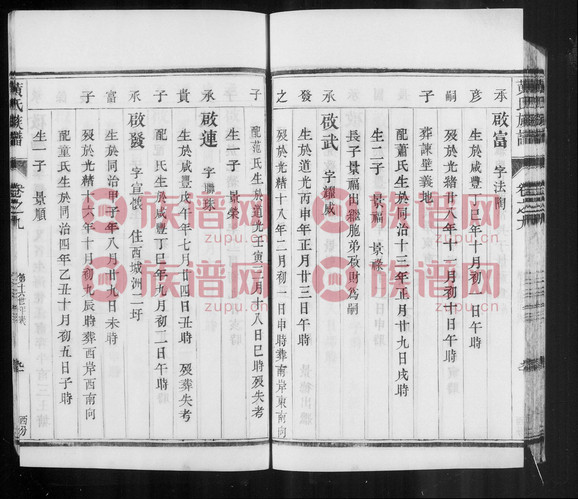 黃氏族譜 卷之九
承彥 啟富 字法陶
生於咸豐 十一月初一日午時
嗣子 葬諫壁義地
配蕭氏生於同治十三年正月廿九日戌時
生二子 景福 景祿
長子景福出繼胞弟啟財爲嗣
承發 啟武 字耀威
生於道光丙申年正月廿三日午時
之子 歿於光緒十八年二月初一日申時葬南岸東南向
配范氏生於道光壬寅 月十八日巳時歿失考
生一子 景榮
承貴 啟運 字聯珠
生於咸豐戊午年七月廿四日丑時 歿葬失考
子 配 氏生於咸豐丁巳年九月初二日午時
承富 啟發 字宣 住西城洲二圩
生於同治甲子年八月廿九日未時
子 歿於光緒十六年十月初九辰時葬西岸西南向
配童氏生於同治四年乙丑十月初五日子時
生一子 景順
黃氏族譜 卷之九
西分
族谱网
zupu.cn
族谱网
zupu.cn
族谱网
zupu.cn
族谱网
zupu.cn